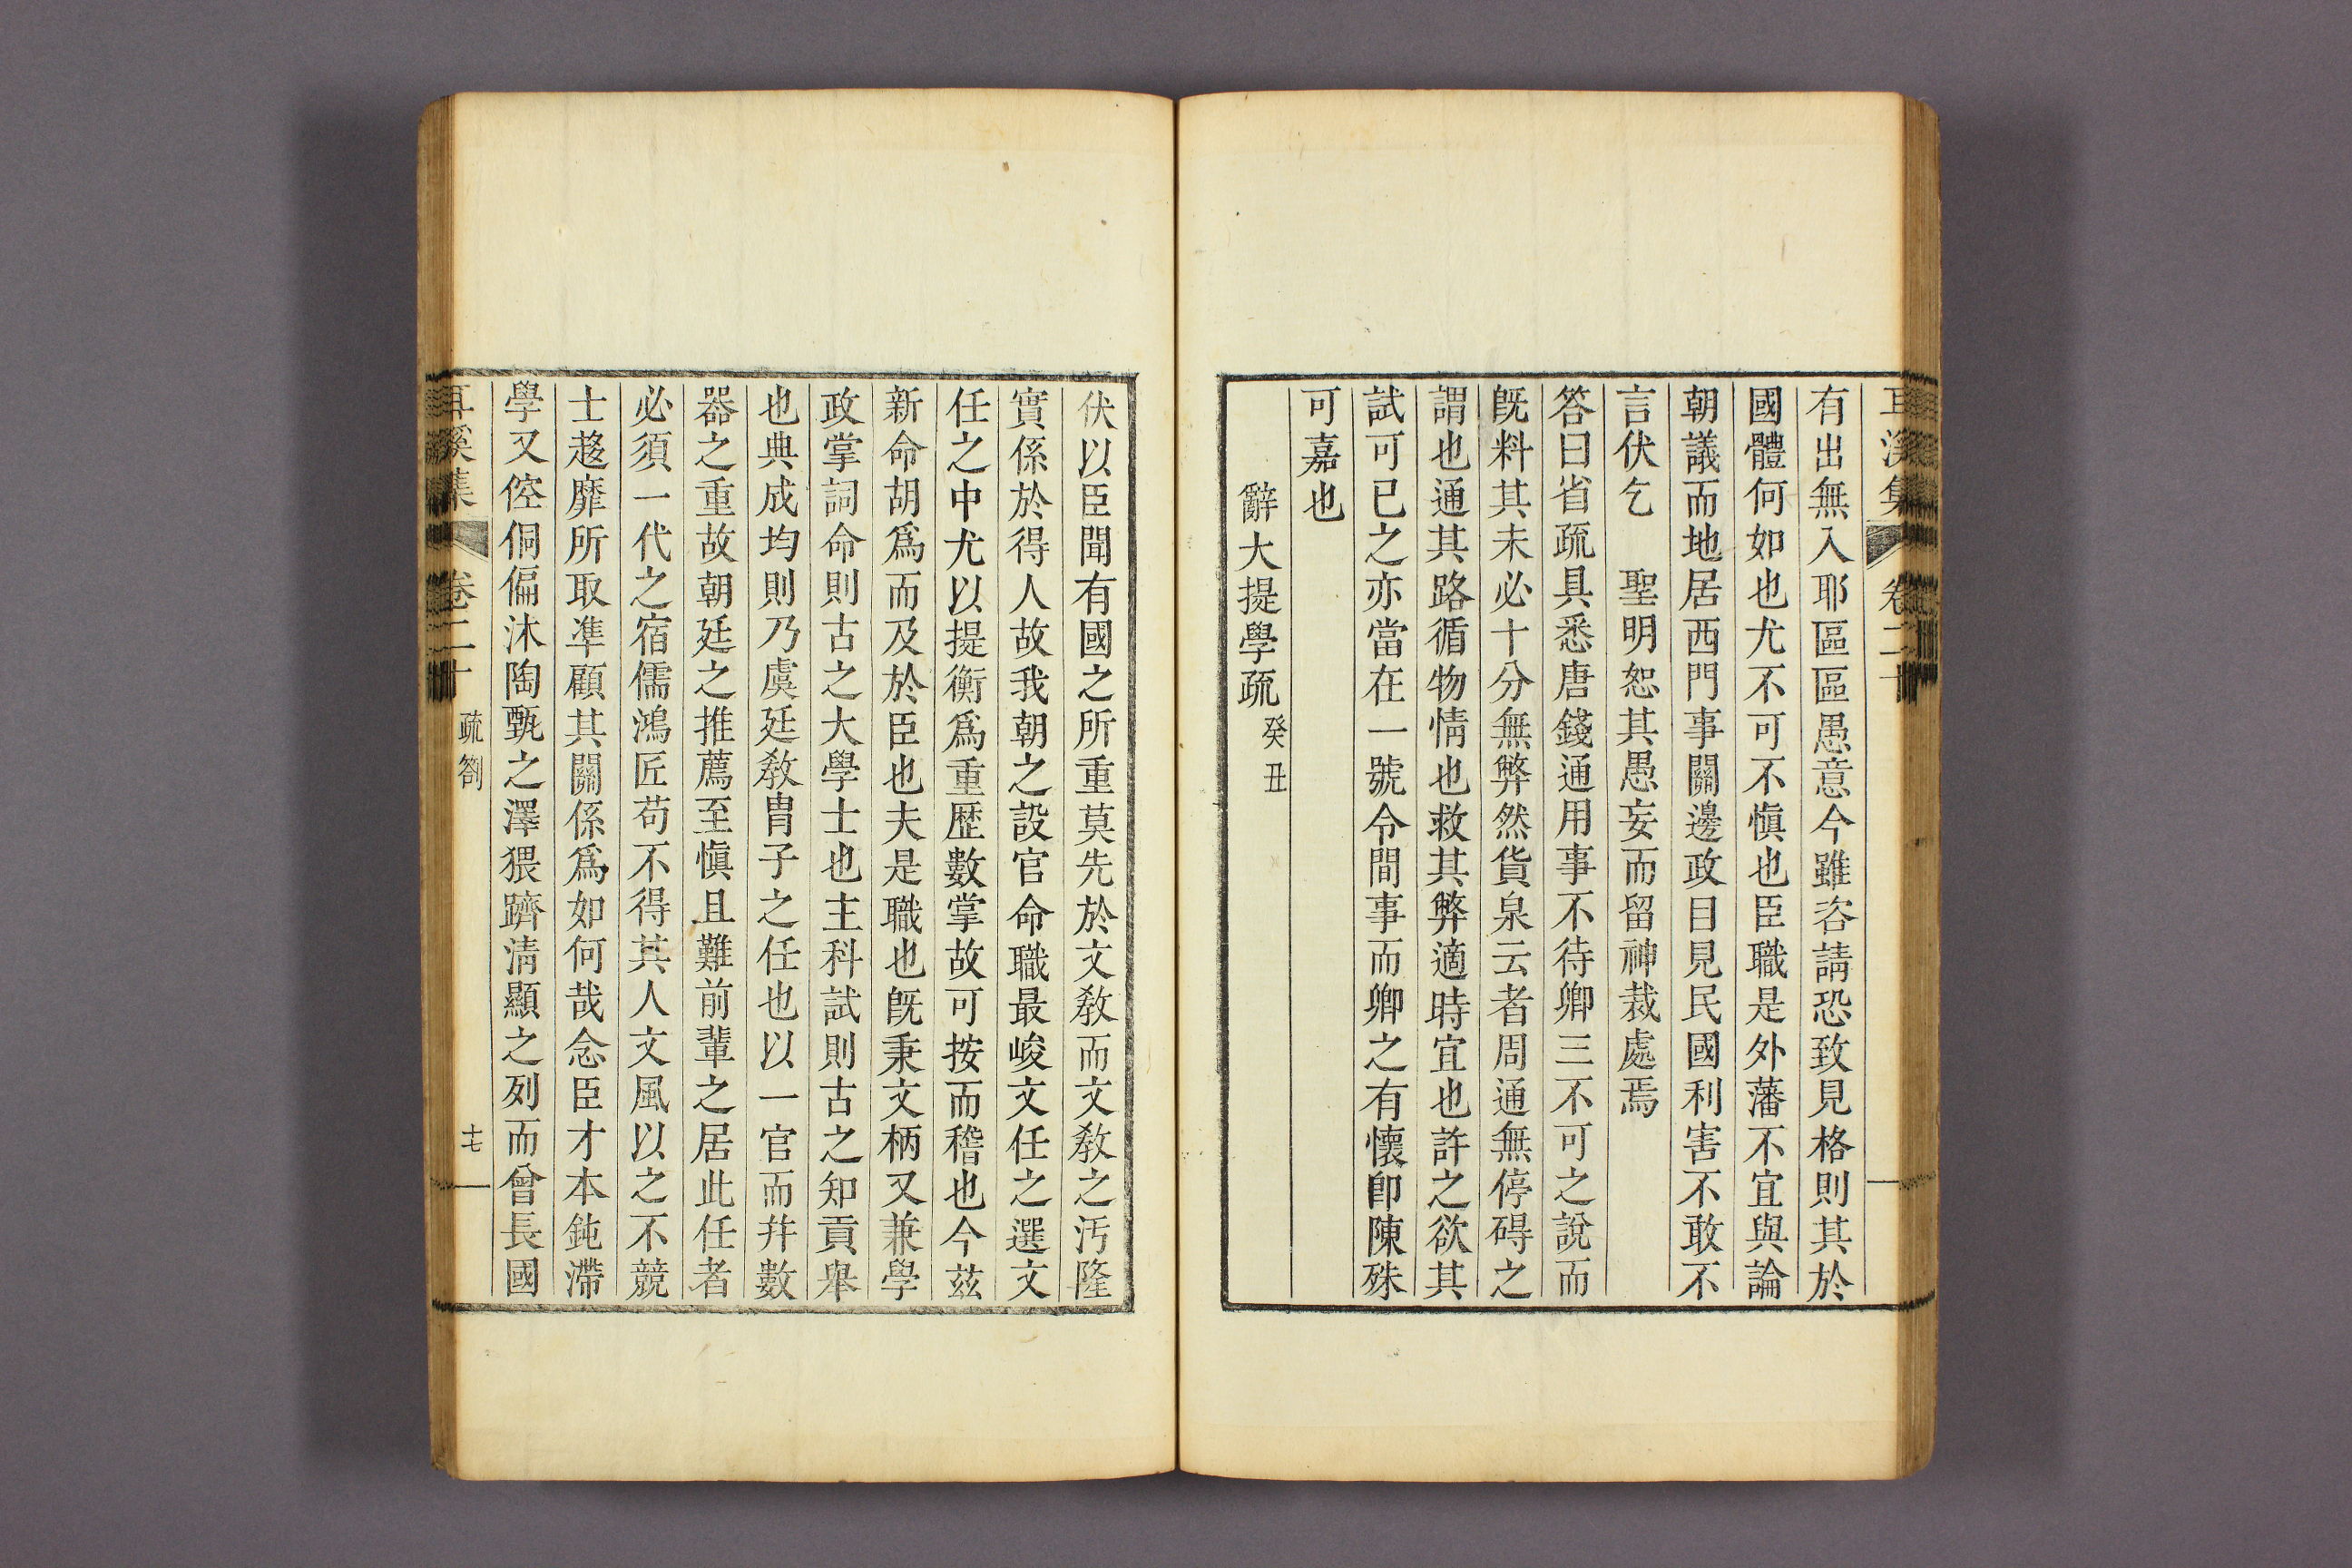 耳溪集 卷二十
有出無入耶區區愚意今雖咨請恐致見格則其於
國體何如也尤不可不愼也臣職是外藩不宜與論
朝議而地居西門事關邊政目見民國利害不敢不
言伏乞　聖明恕其愚妄而留神裁處焉
答曰省疏具悉唐錢通用事不待卿三不可之說而
旣料其未必十分無弊然貨泉云者周通無停碍之
謂也通其路循物情也救其弊適時宜也許之欲其
試可已之亦當在一號令間事而卿之有懷卽陳殊
可嘉也
辭大提學疏 癸丑
伏以臣聞有國之所重莫先於文敎而文敎之汚隆
實係於得人故我朝之設官命職最峻文任之選文
任之中尤以提衡爲重歷數掌故可按而稽也今玆
新命胡爲而及於臣也夫是職也旣秉文柄又兼學
政掌詞命則古之大學士也主科試則古之知貢擧
也典成均則乃虞廷敎冑子之任也以一官而幷數
器之重故朝廷之推薦至愼且難前輩之居此任者
必須一代之宿儒鴻匠苟不得其人文風以之不競
士趍靡所取準顧其關係爲如何哉念臣才本鈍滯
學又倥侗偏沐陶甄之澤猥躋淸顯之列而曾長國
耳溪集 卷二十 疏箚 十七